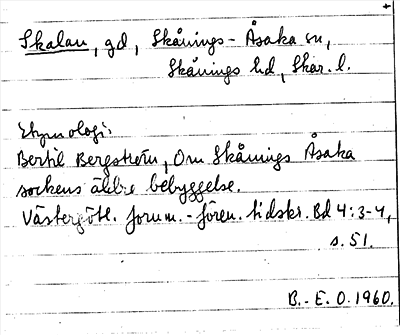 Skalau, gd, Skånings-Åsaka sn,
Skånings hd, Skar. l.
Etymologi:
Bertil Bergström, Om Skånings Åsaka
sockens äldre bebyggelse.
Västergötl. fornm.-fören. tidskr. Bd 4:3-4,
s. 51.
B.-E. O. 1960.